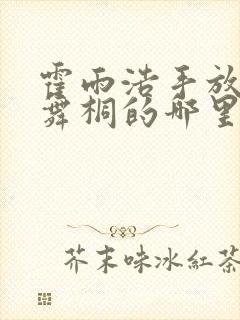 霍雨浩手放
舞桐的那里
芥末味冰紅茶